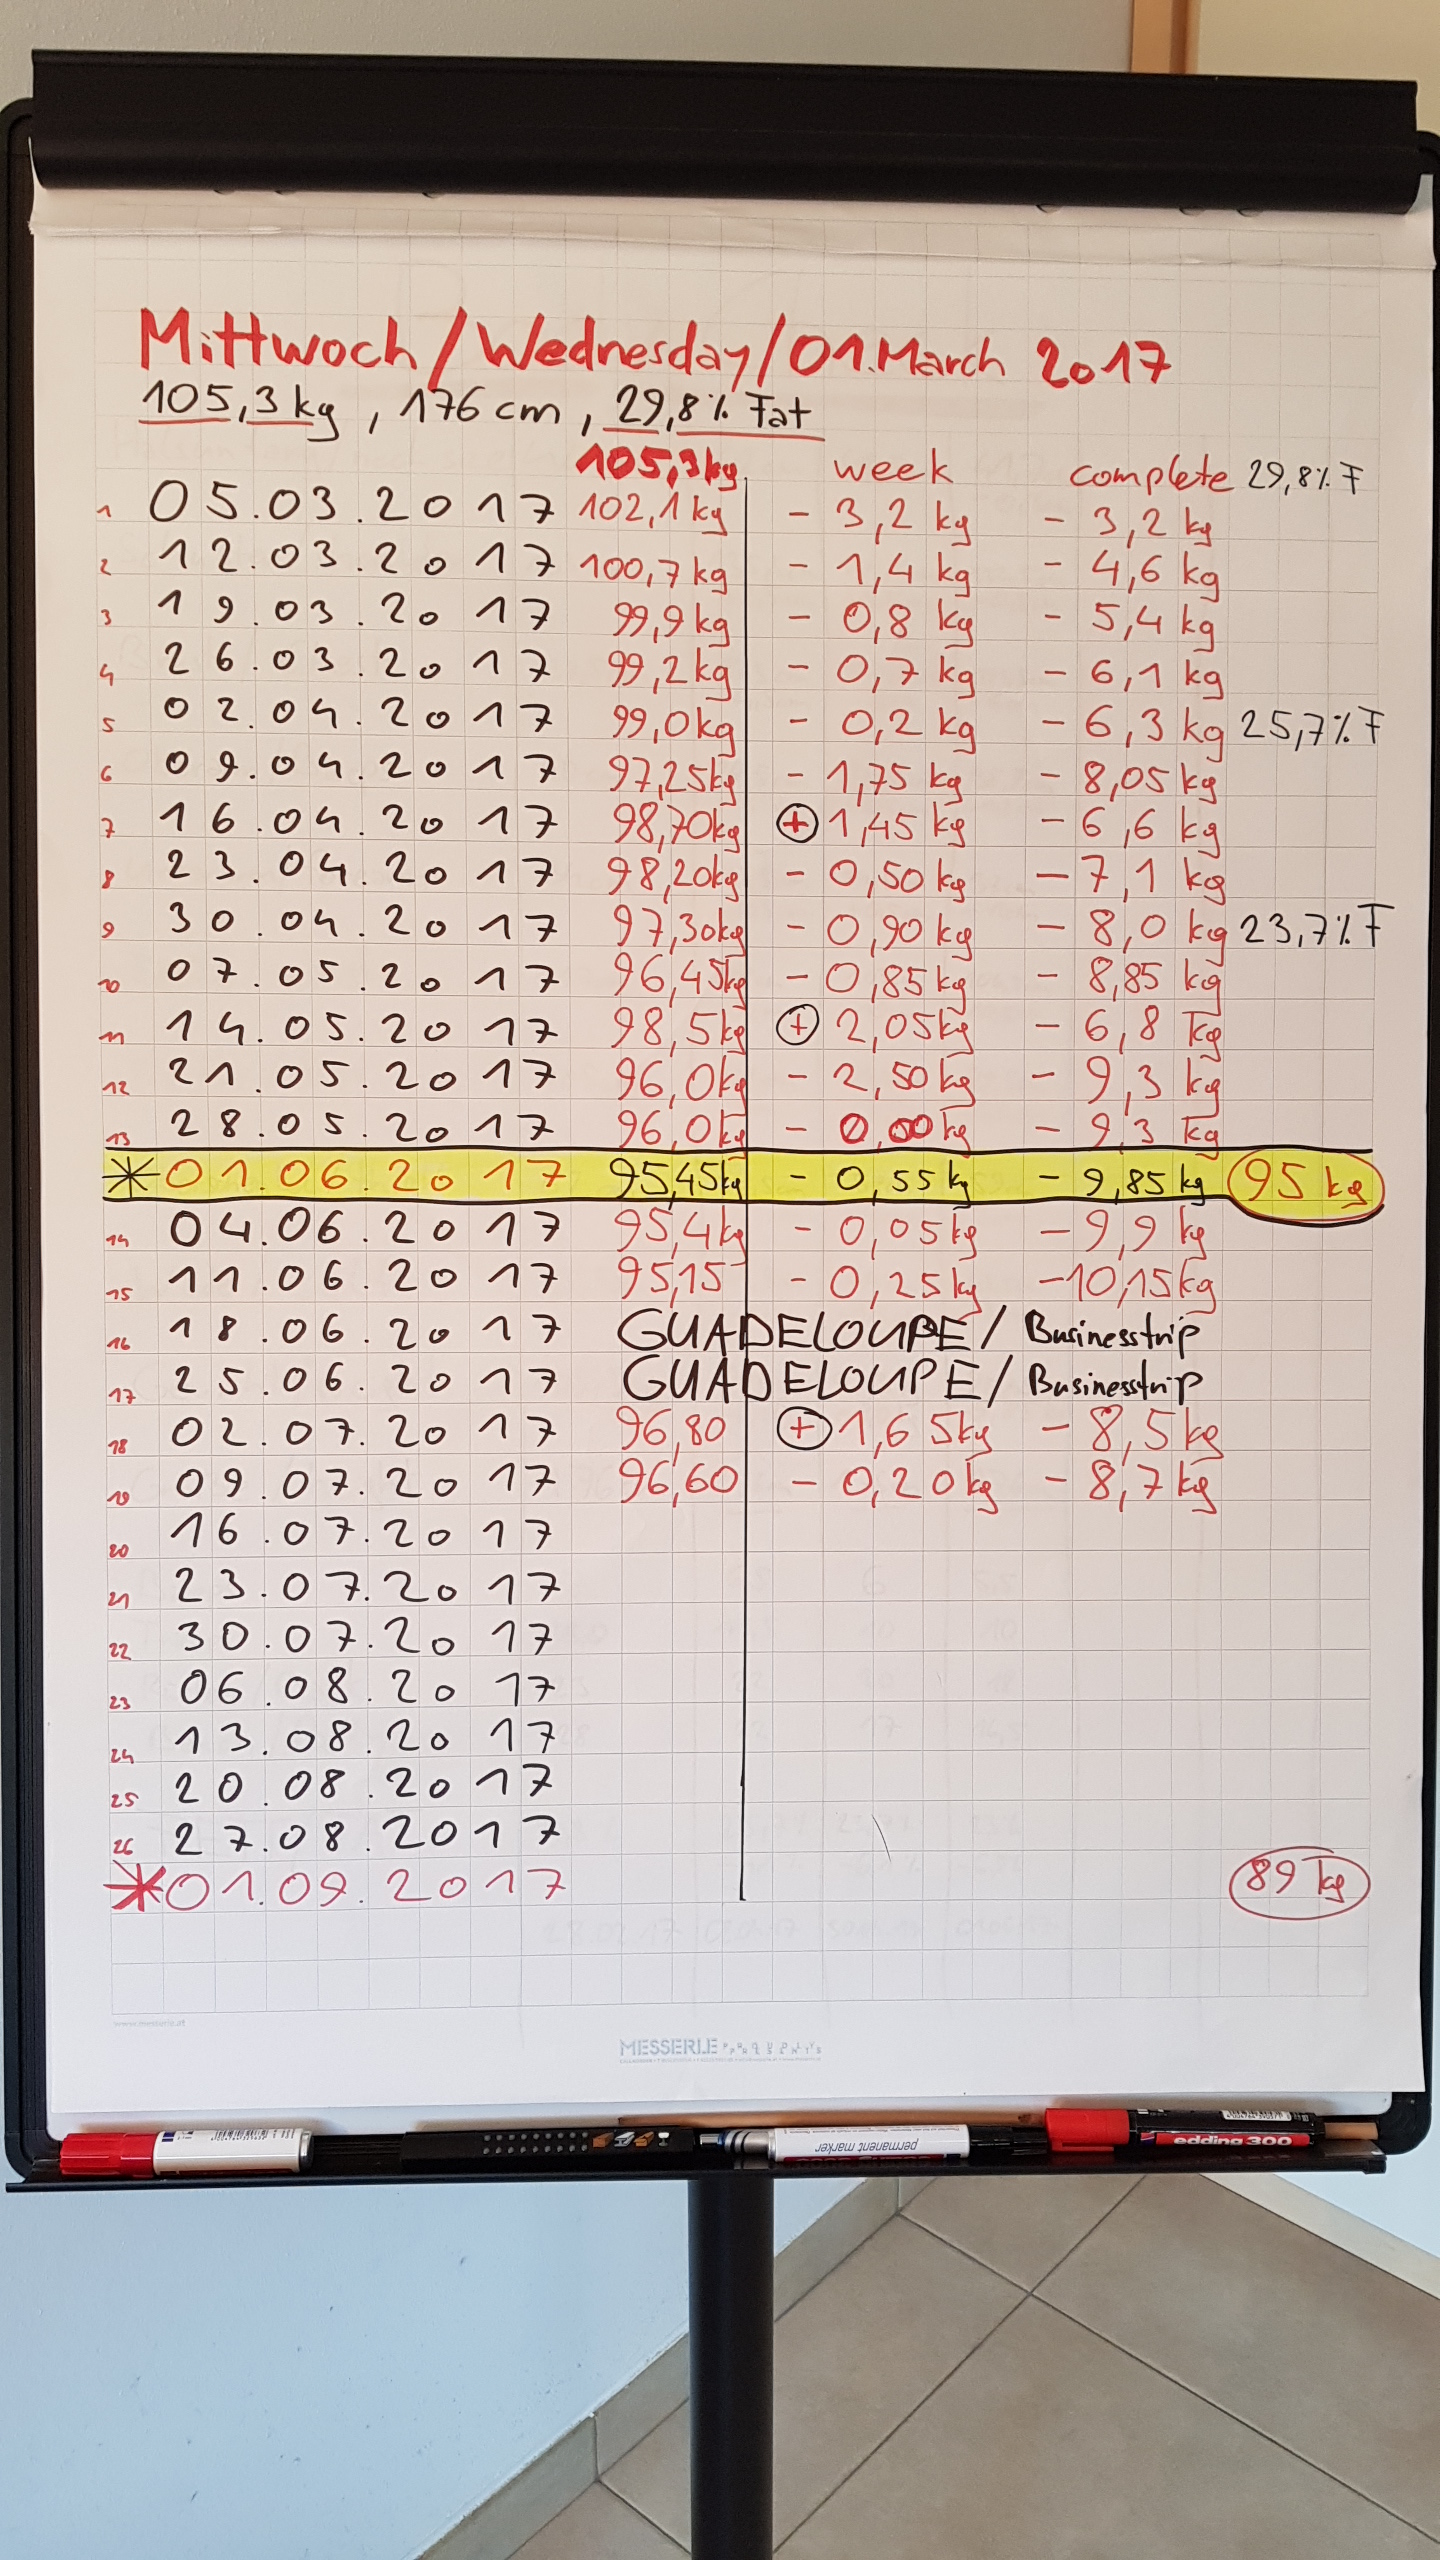 Mittwoch/Wednesday/01.March 2017
105,3 kg, 176 cm, 29,8% Fat
105,3kg week complete 29,8% F
1 05.03.2017 102,1 kg - 3,2 kg - 3,2 kg
2 12.03.2017 100,7 kg - 1,4 kg - 4,6 kg
3 19.03.2017 99,9 kg - 0,8 kg - 5,4 kg
4 26.03.2017 99,2 kg - 0,7 kg - 6,1 kg
5 02.04.2017 99,0 kg - 0,2 kg - 6,3 kg 25,7% F
6 09.04.2017 97,25kg - 1,75 kg - 8,05 kg
7 16.04.2017 98,70kg + 1,45 kg - 6,6 kg
8 23.04.2017 98,20kg - 0,50 kg - 7,1 kg
9 30.04.2017 97,30kg - 0,90 kg - 8,0 kg 23,7% F
10 07.05.2017 96,45kg - 0,85kg - 8,85 kg
11 14.05.2017 98,5kg + 2,05kg - 6,8 kg
12 21.05.2017 96,0kg - 2,50kg - 9,3 kg
13 28.05.2017 96,0kg - 0,00kg - 9,3 kg
* 01.06.2017 95,45kg - 0,55 kg - 9,85 kg 95 kg
14 04.06.2017 95,4kg - 0,05kg - 9,9 kg
15 11.06.2017 95,15 - 0,25kg -10,15kg
16 18.06.2017 GUADELOUPE/ Businesstrip
17 25.06.2017 GUADELOUPE/ Businesstrip
18 02.07.2017 96,80 + 1,65kg - 8,5kg
19 09.07.2017 96,60 - 0,20kg - 8,7kg
20 16.07.2017
21 23.07.2017
22 30.07.2017
23 06.08.2017
24 13.08.2017
25 20.08.2017
26 27.08.2017
* 01.09.2017 89 kg
www.messerle.at
MESSERLE
permanent marker
edding 300